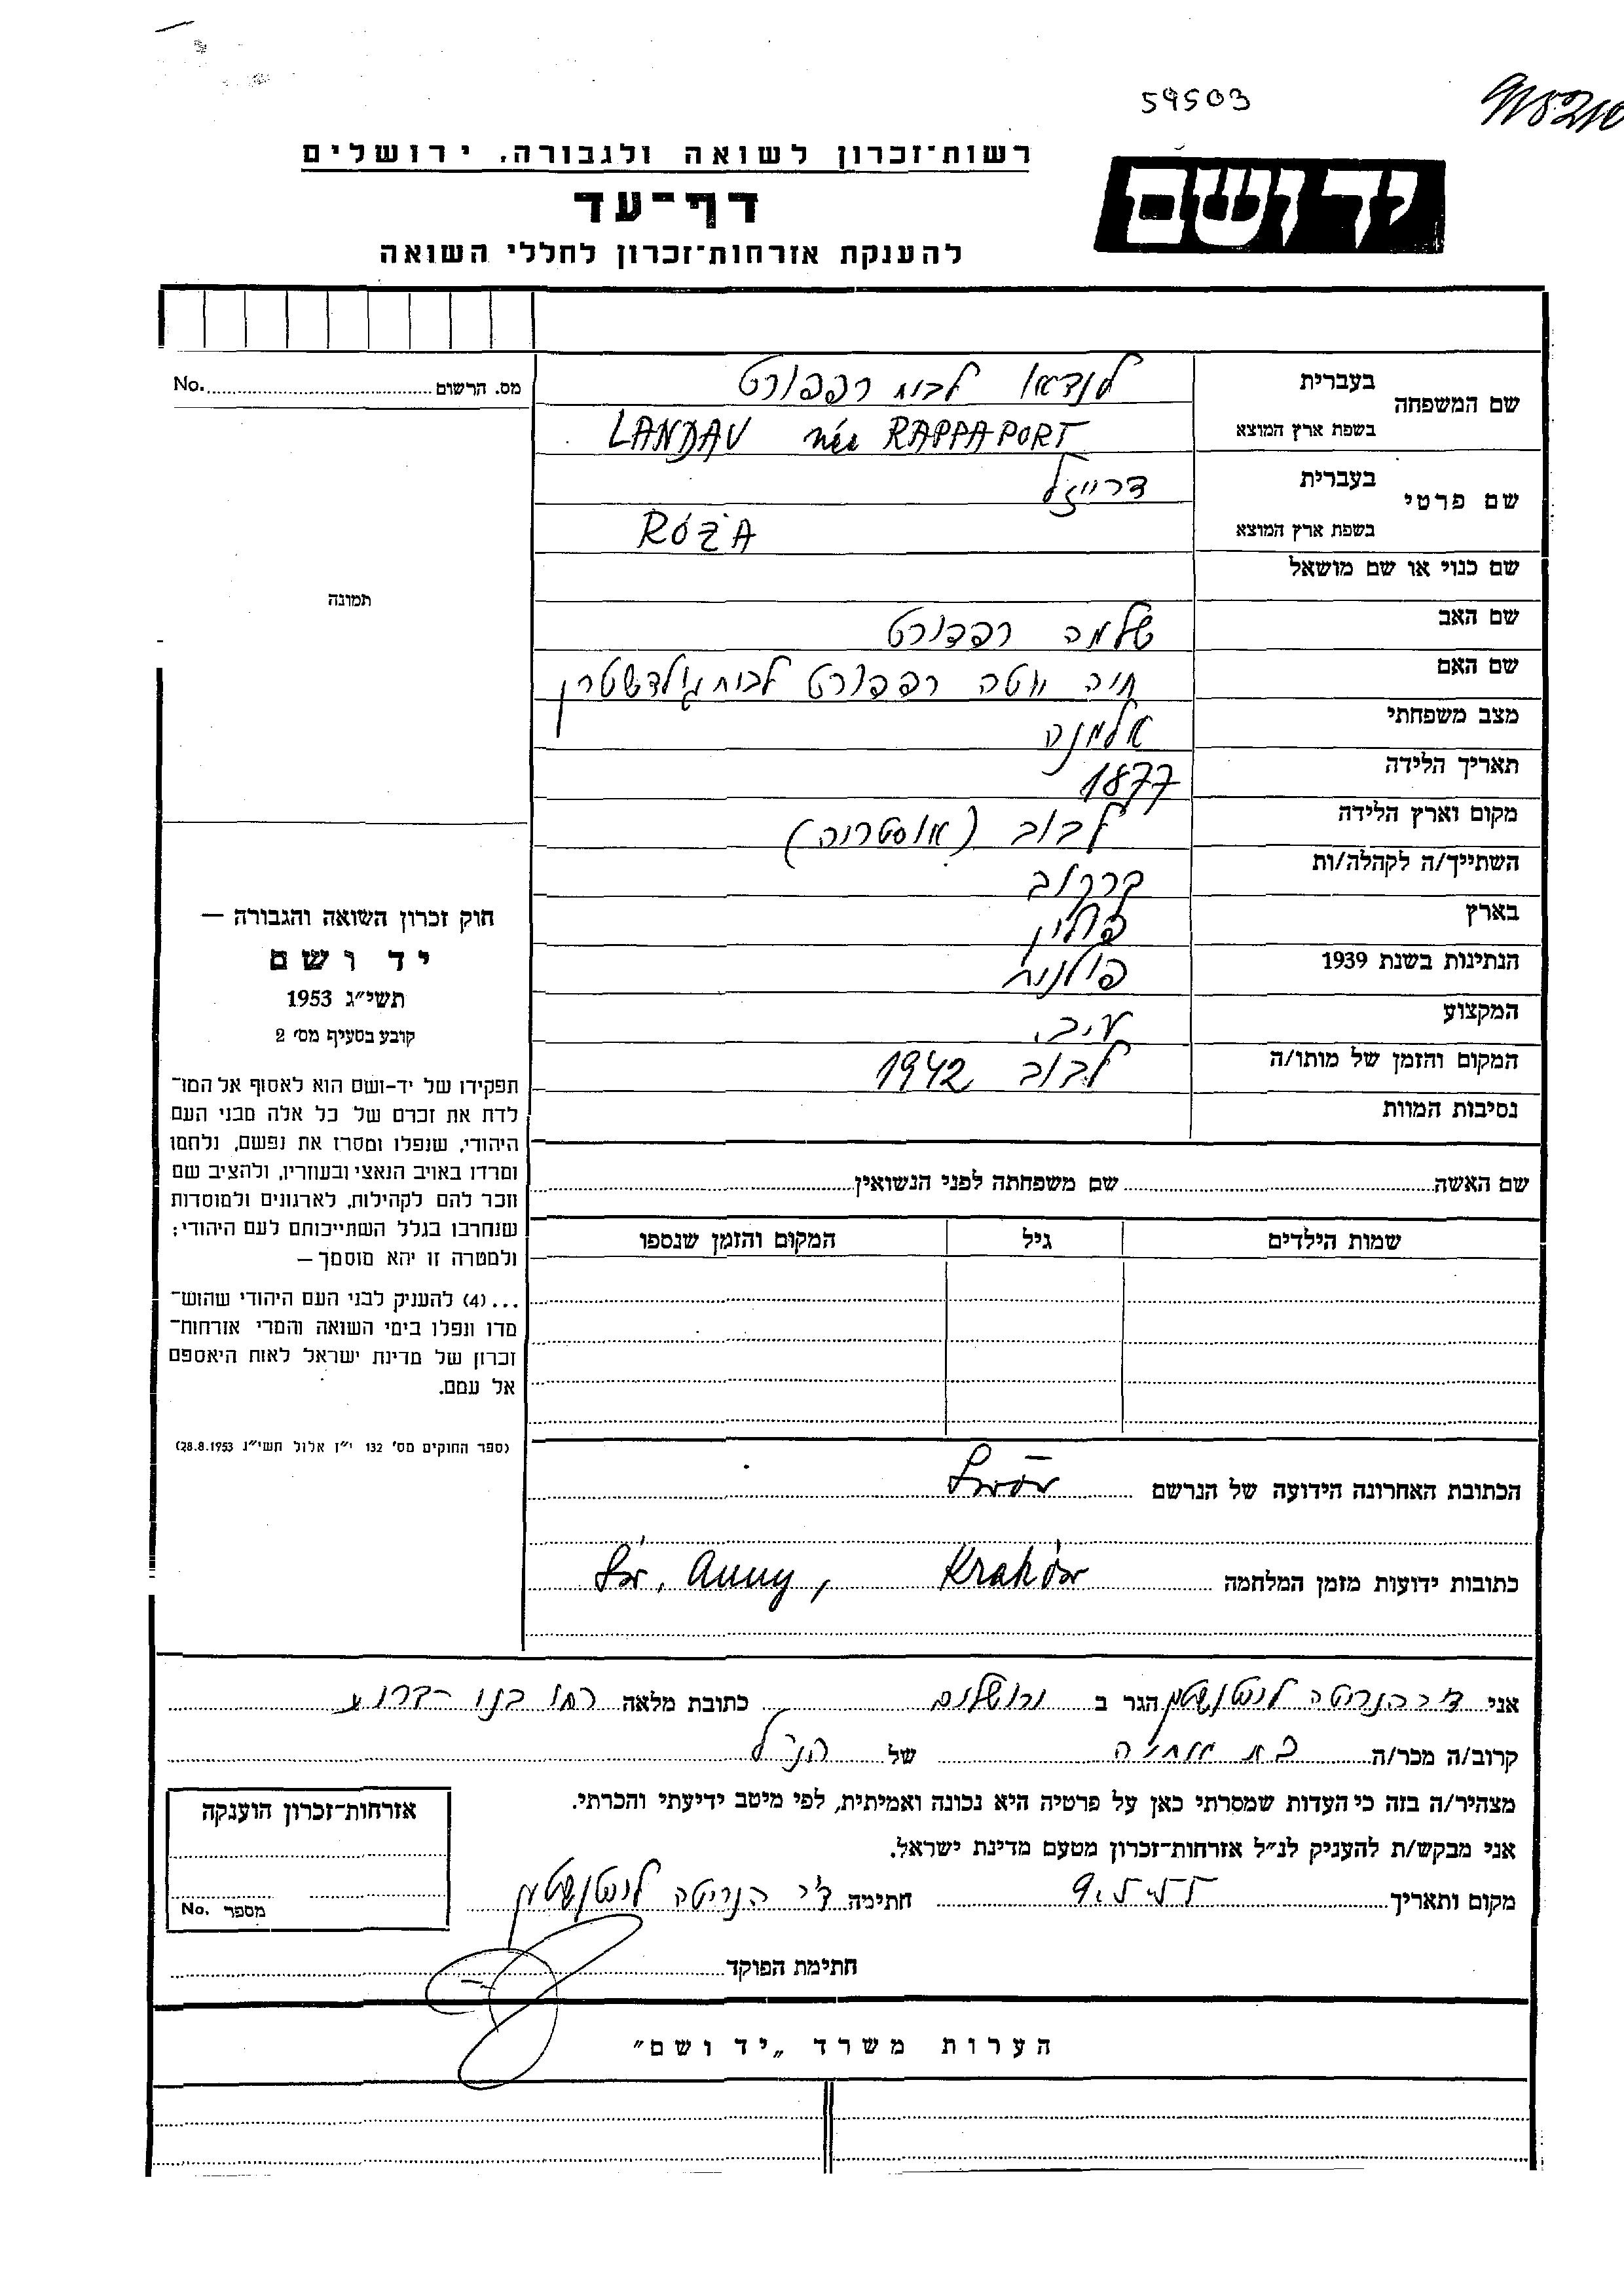 59503
רשות־זכרון לשואה ולגבורה, ירושלים
יד ושם
דף־עד
להענקת אזרחות־זכרון לחללי השואה
מס. הרשום No.
שם המשפחה בעברית לנדאו לבית רפפורט
בשפת ארץ המוצא LANDAU née RAPPAPORT
שם פרטי בעברית דרייזל
בשפת ארץ המוצא RÓŻA
שם כנוי או שם מושאל
תמונה
שם האב שלמה רפפורט
שם האם חיה יוטה רפפורט לבית גילדשטרן
מצב משפחתי אלמנה
תאריך הלידה 1877
מקום וארץ הלידה לבוב (אוסטריה)
השתייך/ה לקהלה/ות קרקוב
בארץ פולין
הנתינות בשנת 1939 פולנית
המקצוע ע.ב.
המקום והזמן של מותו/ה לבוב 1942
נסיבות המוות
חוק זכרון השואה והגבורה —
יד ושם
תשי״ג 1953
קובע בסעיף מס׳ 2
תפקידו של יד-ושם הוא לאסוף אל המו־
לדת את זכרם של כל אלה מבני העם
היהודי, שנפלו ומסרו את נפשם, נלחמו
ומרדו באויב הנאצי ובעוזריו, ולהציב שם
וזכר להם לקהילות, לארגונים ולמוסדות
שנחרבו בגלל השתייכותם לעם היהודי;
ולמטרה זו יהא מוסמך —
...(4) להעניק לבני העם היהודי שהוש־
מדו ונפלו בימי השואה והמרי אזרחות־
זכרון של מדינת ישראל לאות היאספם
אל עמם.
(ספר החוקים מס׳ 132 י״ז אלול תשי״ג 28.8.1953)
שם האשה שם משפחתה לפני הנשואין
שמות הילדים גיל המקום והזמן שנספו
הכתובת האחרונה הידועה של הנרשם Lwów
כתובות ידועות מזמן המלחמה Kraków Św. Anny,
אני ד״ר הנריטה ליכטנשטין הגר ב ירושלים כתובת מלאה
קרוב/ה מכר/ה בת אחיה של הנ״ל
מצהיר/ה בזה כי העדות שמסרתי כאן על פרטיה היא נכונה ואמיתית, לפי מיטב ידיעתי והכרתי.
אני מבקש/ת להעניק לנ״ל אזרחות־זכרון מטעם מדינת ישראל.
מקום ותאריך חתימה ד״ר הנריטה ליכטנשטין
חתימת הפוקד
אזרחות־זכרון הוענקה
מספר No.
הערות משרד „יד ושם״